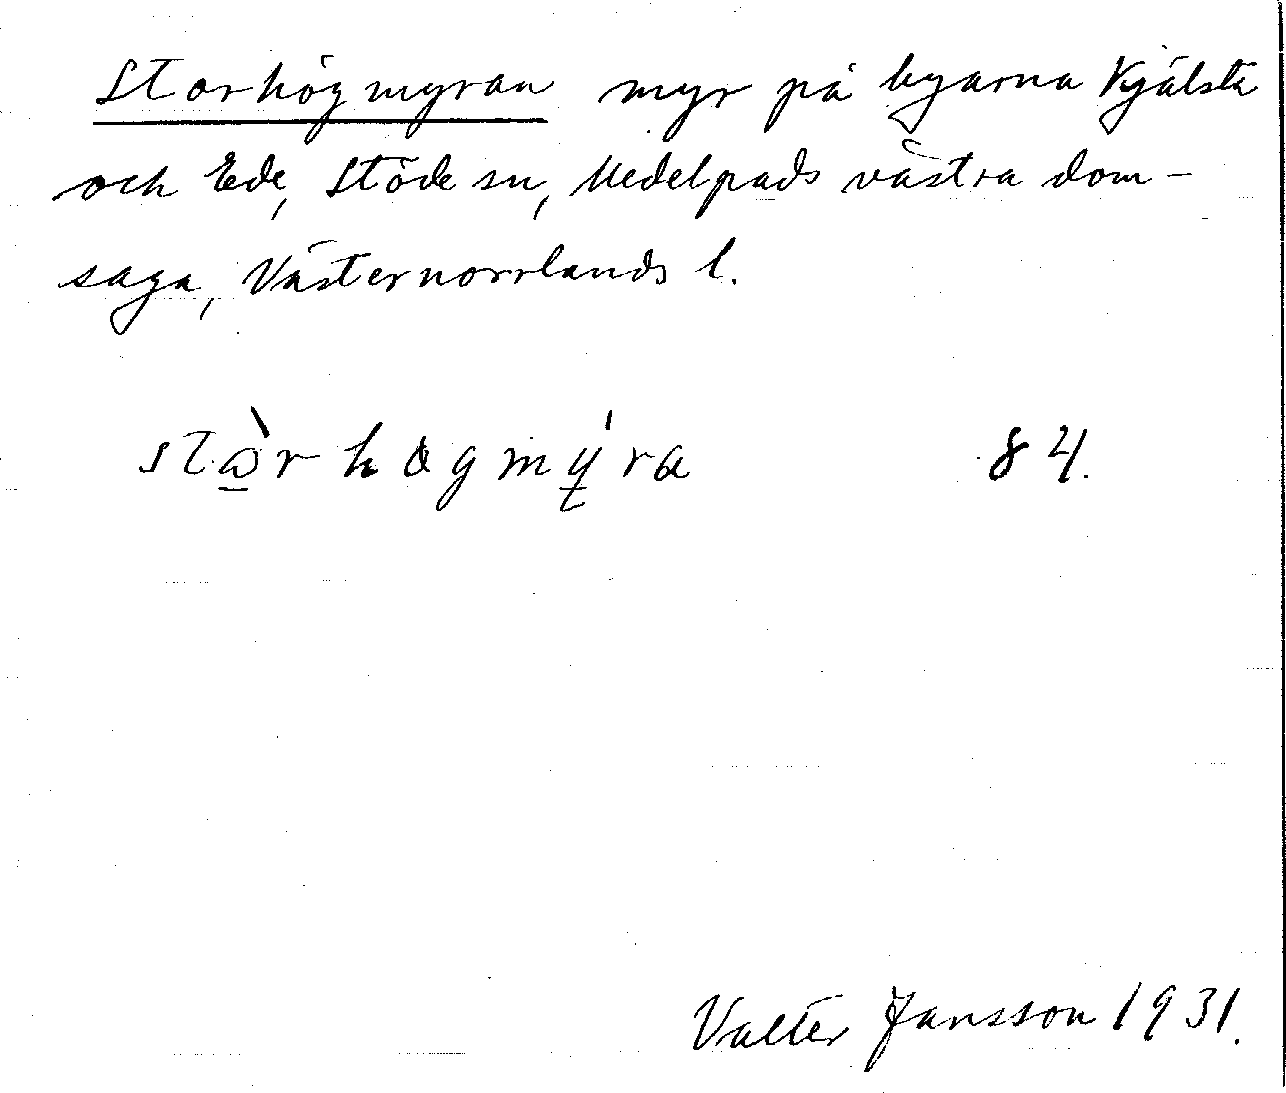 Storhögmyran myr på byarna Kjälsta
och Ede, Stöde sn, Medelpads västra dom-
saga, Västernorrlands l.
stɷ̠̀rhøgmý̠ra 84.
Valter Jansson 1931.